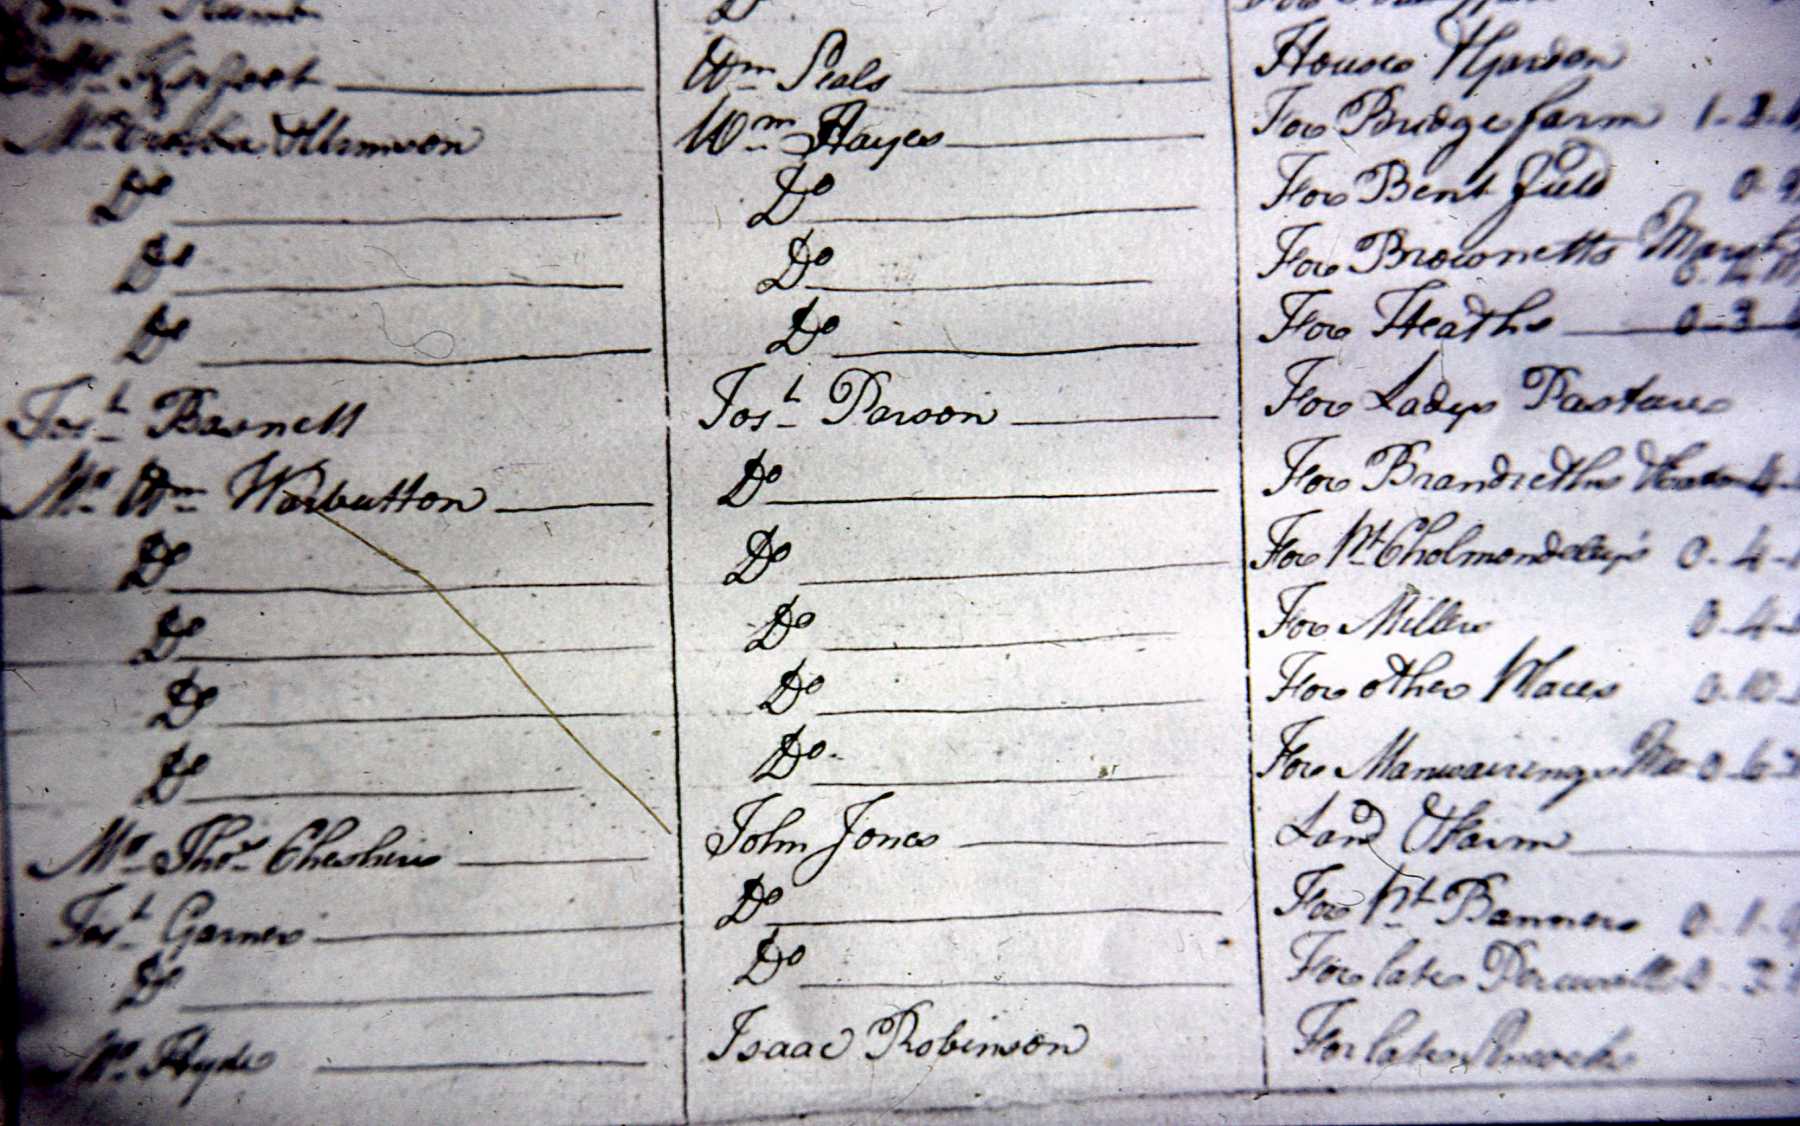 Do
Wm Seals House & Garden
Mr Wm Hayes For Bridge farm 1-3-
Do Do For Bent field 0-9
Do Do For Brownetts Marsh
Do Do For Heaths 0-3
Josh Barnett Josh Parson For Ladys Pasture
Mr Wm Warbutton Do For Brandreths 4-
Do Do For Pt Cholmondeleys 0-4-
Do Do For Millers 0-4-
Do Do For other Places 0-10-
Do Do For Manwairings 0-6-
Mr Thos Cheshire John Jones Land & Farm
Josh Garner Do For Pt Banners 0-1-
Do Do For late 0-3
Mr Hyde Isaac Robinson For late